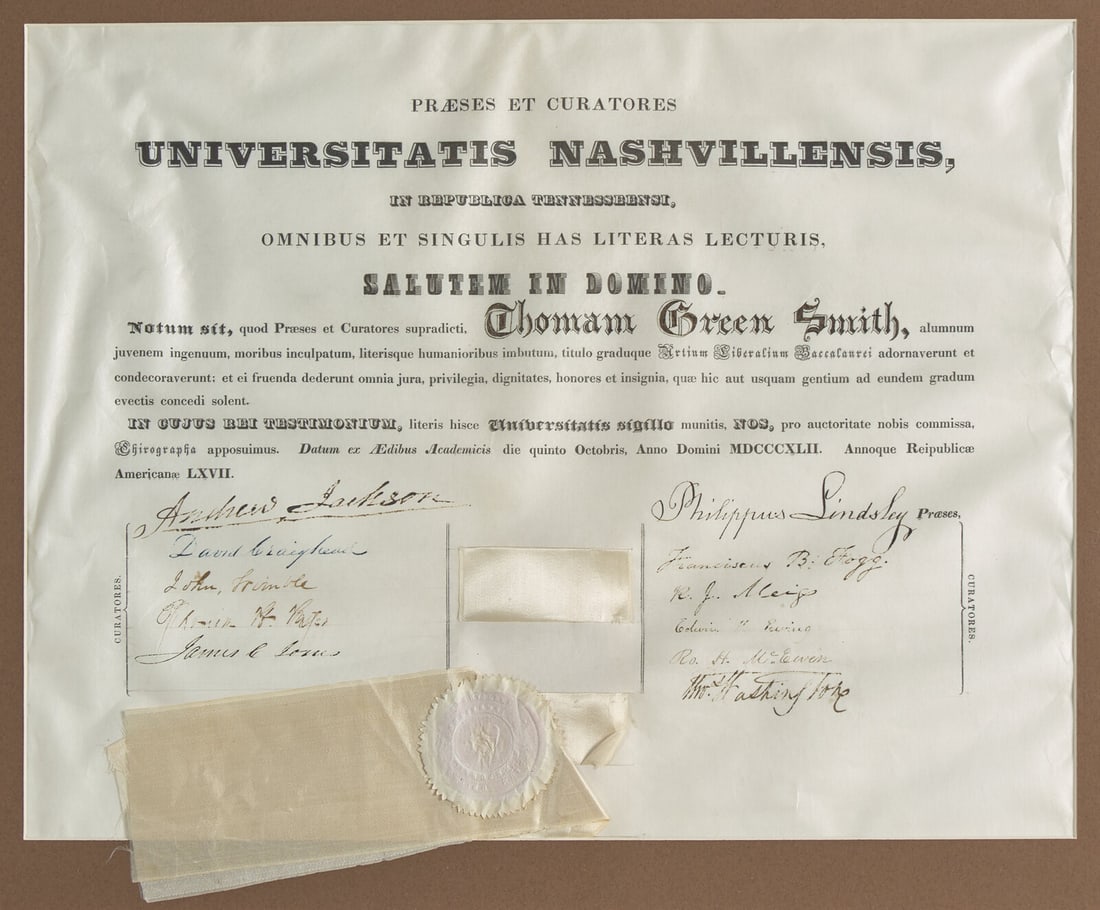 PRÆSES ET CURATORES
UNIVERSITATIS NASHVILLENSIS,
IN REPUBLICA TENNESSEENSI,
OMNIBUS ET SINGULIS HAS LITERAS LECTURIS,
SALUTEM IN DOMINO.
Notum sit, quod Præses et Curatores supradicti, Thomam Green Smith, alumnum
juvenem ingenuum, moribus inculpatum, literisque humanioribus imbutum, titulo graduque Artium Liberalium Baccalaurei adornaverunt et
condecoraverunt; et ei fruenda dederunt omnia jura, privilegia, dignitates, honores et insignia, quæ hic aut usquam gentium ad eundem gradum
evectis concedi solent.
IN CUJUS REI TESTIMONIUM, literis hisce Universitatis sigillo munitis, NOS, pro auctoritate nobis commissa,
Chirographa apposuimus. Datum ex Ædibus Academicis die quinto Octobris, Anno Domini MDCCCXLII. Annoque Reipublicæ
Americanæ LXVII.
Andrew Jackson
David Craighead
John Trimble
James C Jones
CURATORES.
Philippus Lindsley Præses,
Franciscus B. Fogg.
R. J. Meigs
Edwin H Ewing
Ro. H. McEwen
Tho. Washington
CURATORES.